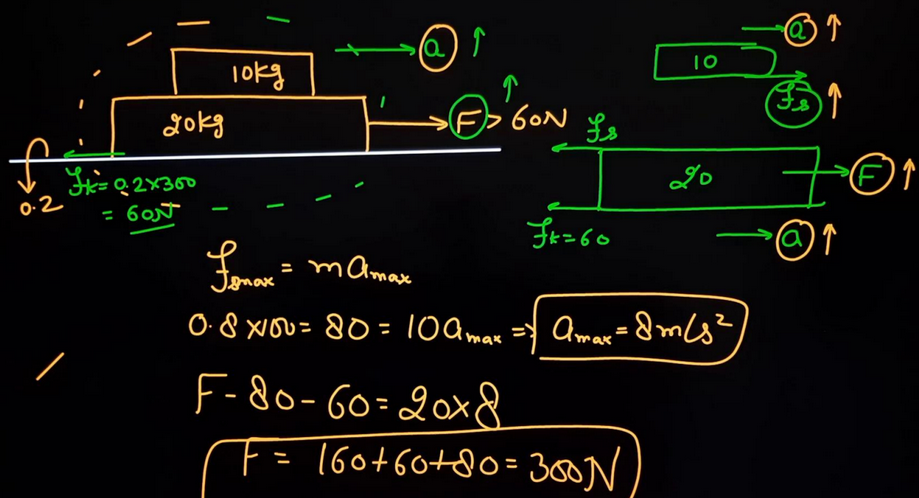 10kg
a ↑
20kg
F > 60N
0.2
fk = 0.2×300
= 60N
10
a ↑
fs ↑
fs
20
F ↑
fk = 60
a ↑
fsmax = m amax
0.8×100 = 80 = 10 amax ⇒ amax = 8m/s²
F - 80 - 60 = 20×8
F = 160+60+80 = 300N